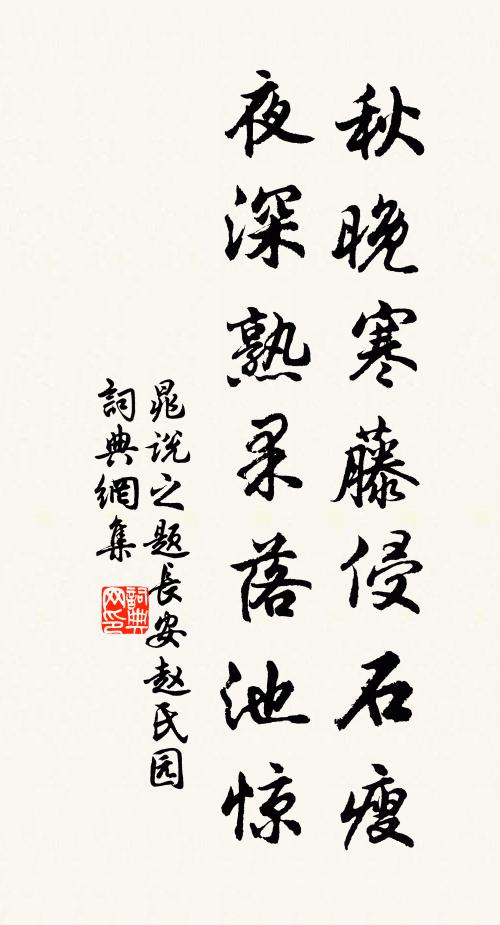 秋晚寒藤侵石瘦
夜深熟果落池惊
晁说之题长安赵氏园
詞典網集
詞典
网印